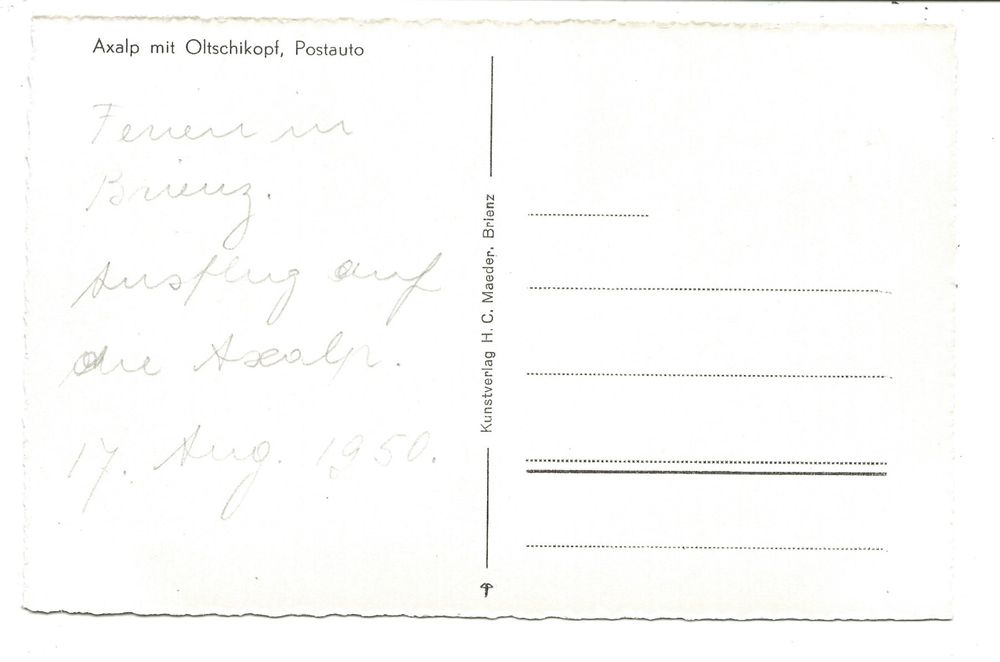 Axalp mit Oltschikopf, Postauto
Ferien in
Brienz.
Ausflug auf
die Axalp.
17. Aug. 1950.
Kunstverlag H. C. Maeder, Brienz